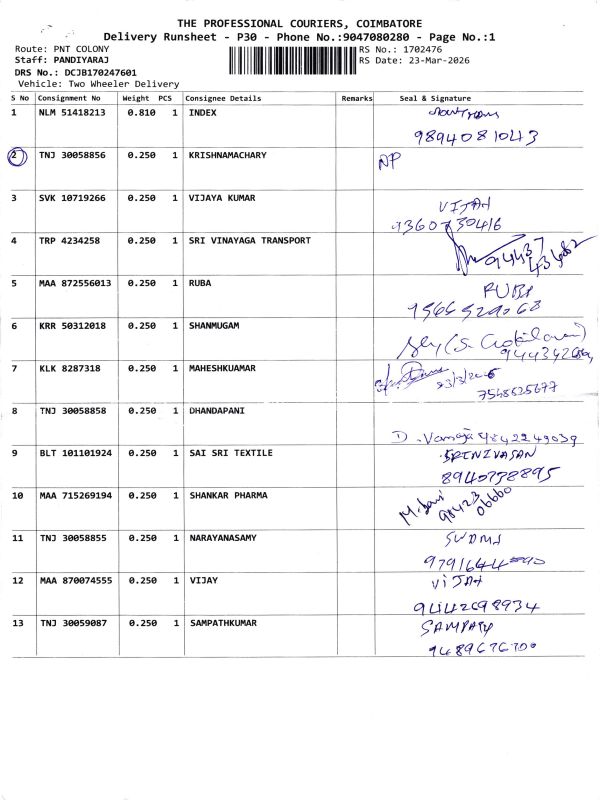 THE PROFESSIONAL COURIERS, COIMBATORE
Delivery Runsheet - P30 - Phone No.:9047080280 - Page No.:1
Route: PNT COLONY RS No.: 1702476
Staff: PANDIYARAJ RS Date: 23-Mar-2026
DRS No.: DCJB170247601
Vehicle: Two Wheeler Delivery
S No Consignment No Weight PCS Consignee Details Remarks Seal & Signature
1 NLM 51418213 0.810 1 INDEX
9894081043
2 TNJ 30058856 0.250 1 KRISHNAMACHARY NP
3 SVK 10719266 0.250 1 VIJAYA KUMAR VIJAY
9360730416
4 TRP 4234258 0.250 1 SRI VINAYAGA TRANSPORT
94437
5 MAA 872556013 0.250 1 RUBA RUBA
6 KRR 50312018 0.250 1 SHANMUGAM
7 KLK 8287318 0.250 1 MAHESHKUAMAR
7548525677
8 TNJ 30058858 0.250 1 DHANDAPANI
D. Vanaja 9842249039
9 BLT 101101924 0.250 1 SAI SRI TEXTILE SRINIVASAN
8940738895
10 MAA 715269194 0.250 1 SHANKAR PHARMA
98423
06660
11 TNJ 30058855 0.250 1 NARAYANASAMY
12 MAA 870074555 0.250 1 VIJAY VIJAY
9442698934
13 TNJ 30059087 0.250 1 SAMPATHKUMAR SAMPATH
9489676700